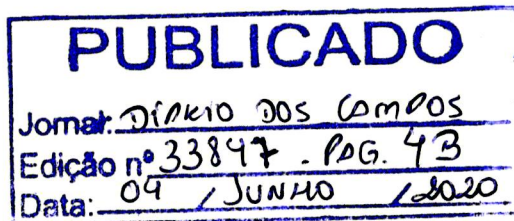 PUBLICADO
Jornal: DIÁRIO DOS CAMPOS
Edição nº 33847 . PAG. 4B
Data: 04 / JUNHO / 2020